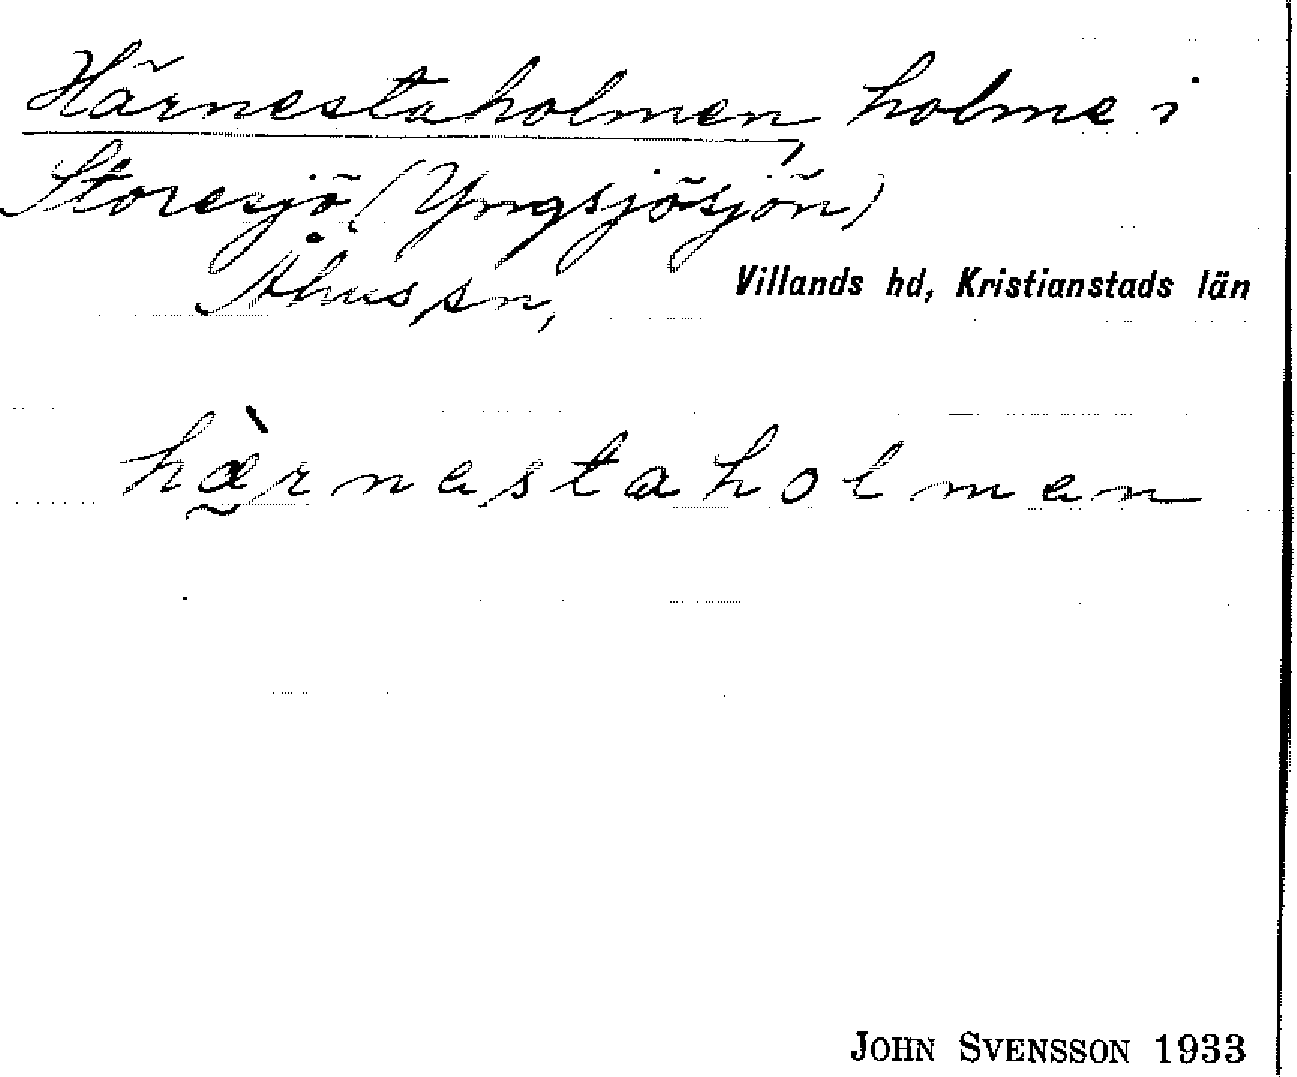 Härnestaholmen, holme i
Storesjö (Yngsjösjön)
Åhus sn, Villands hd, Kristianstads län
hæ̀rnestaholmen
JOHN SVENSSON 1933